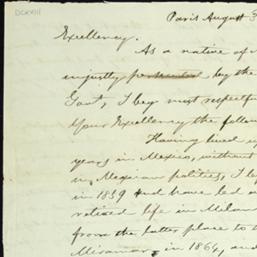 DCXXIII
Paris August 3
Excellency.
As a native of
injustly persecuted by the
Govt, I beg most respectf
your Excellency the follow
Having lived u
years in Mexico, without
in Mexican politics, I le
in 1859 and have led a
retired life in Milan
from the latter place to
Miramar, in 1864, and